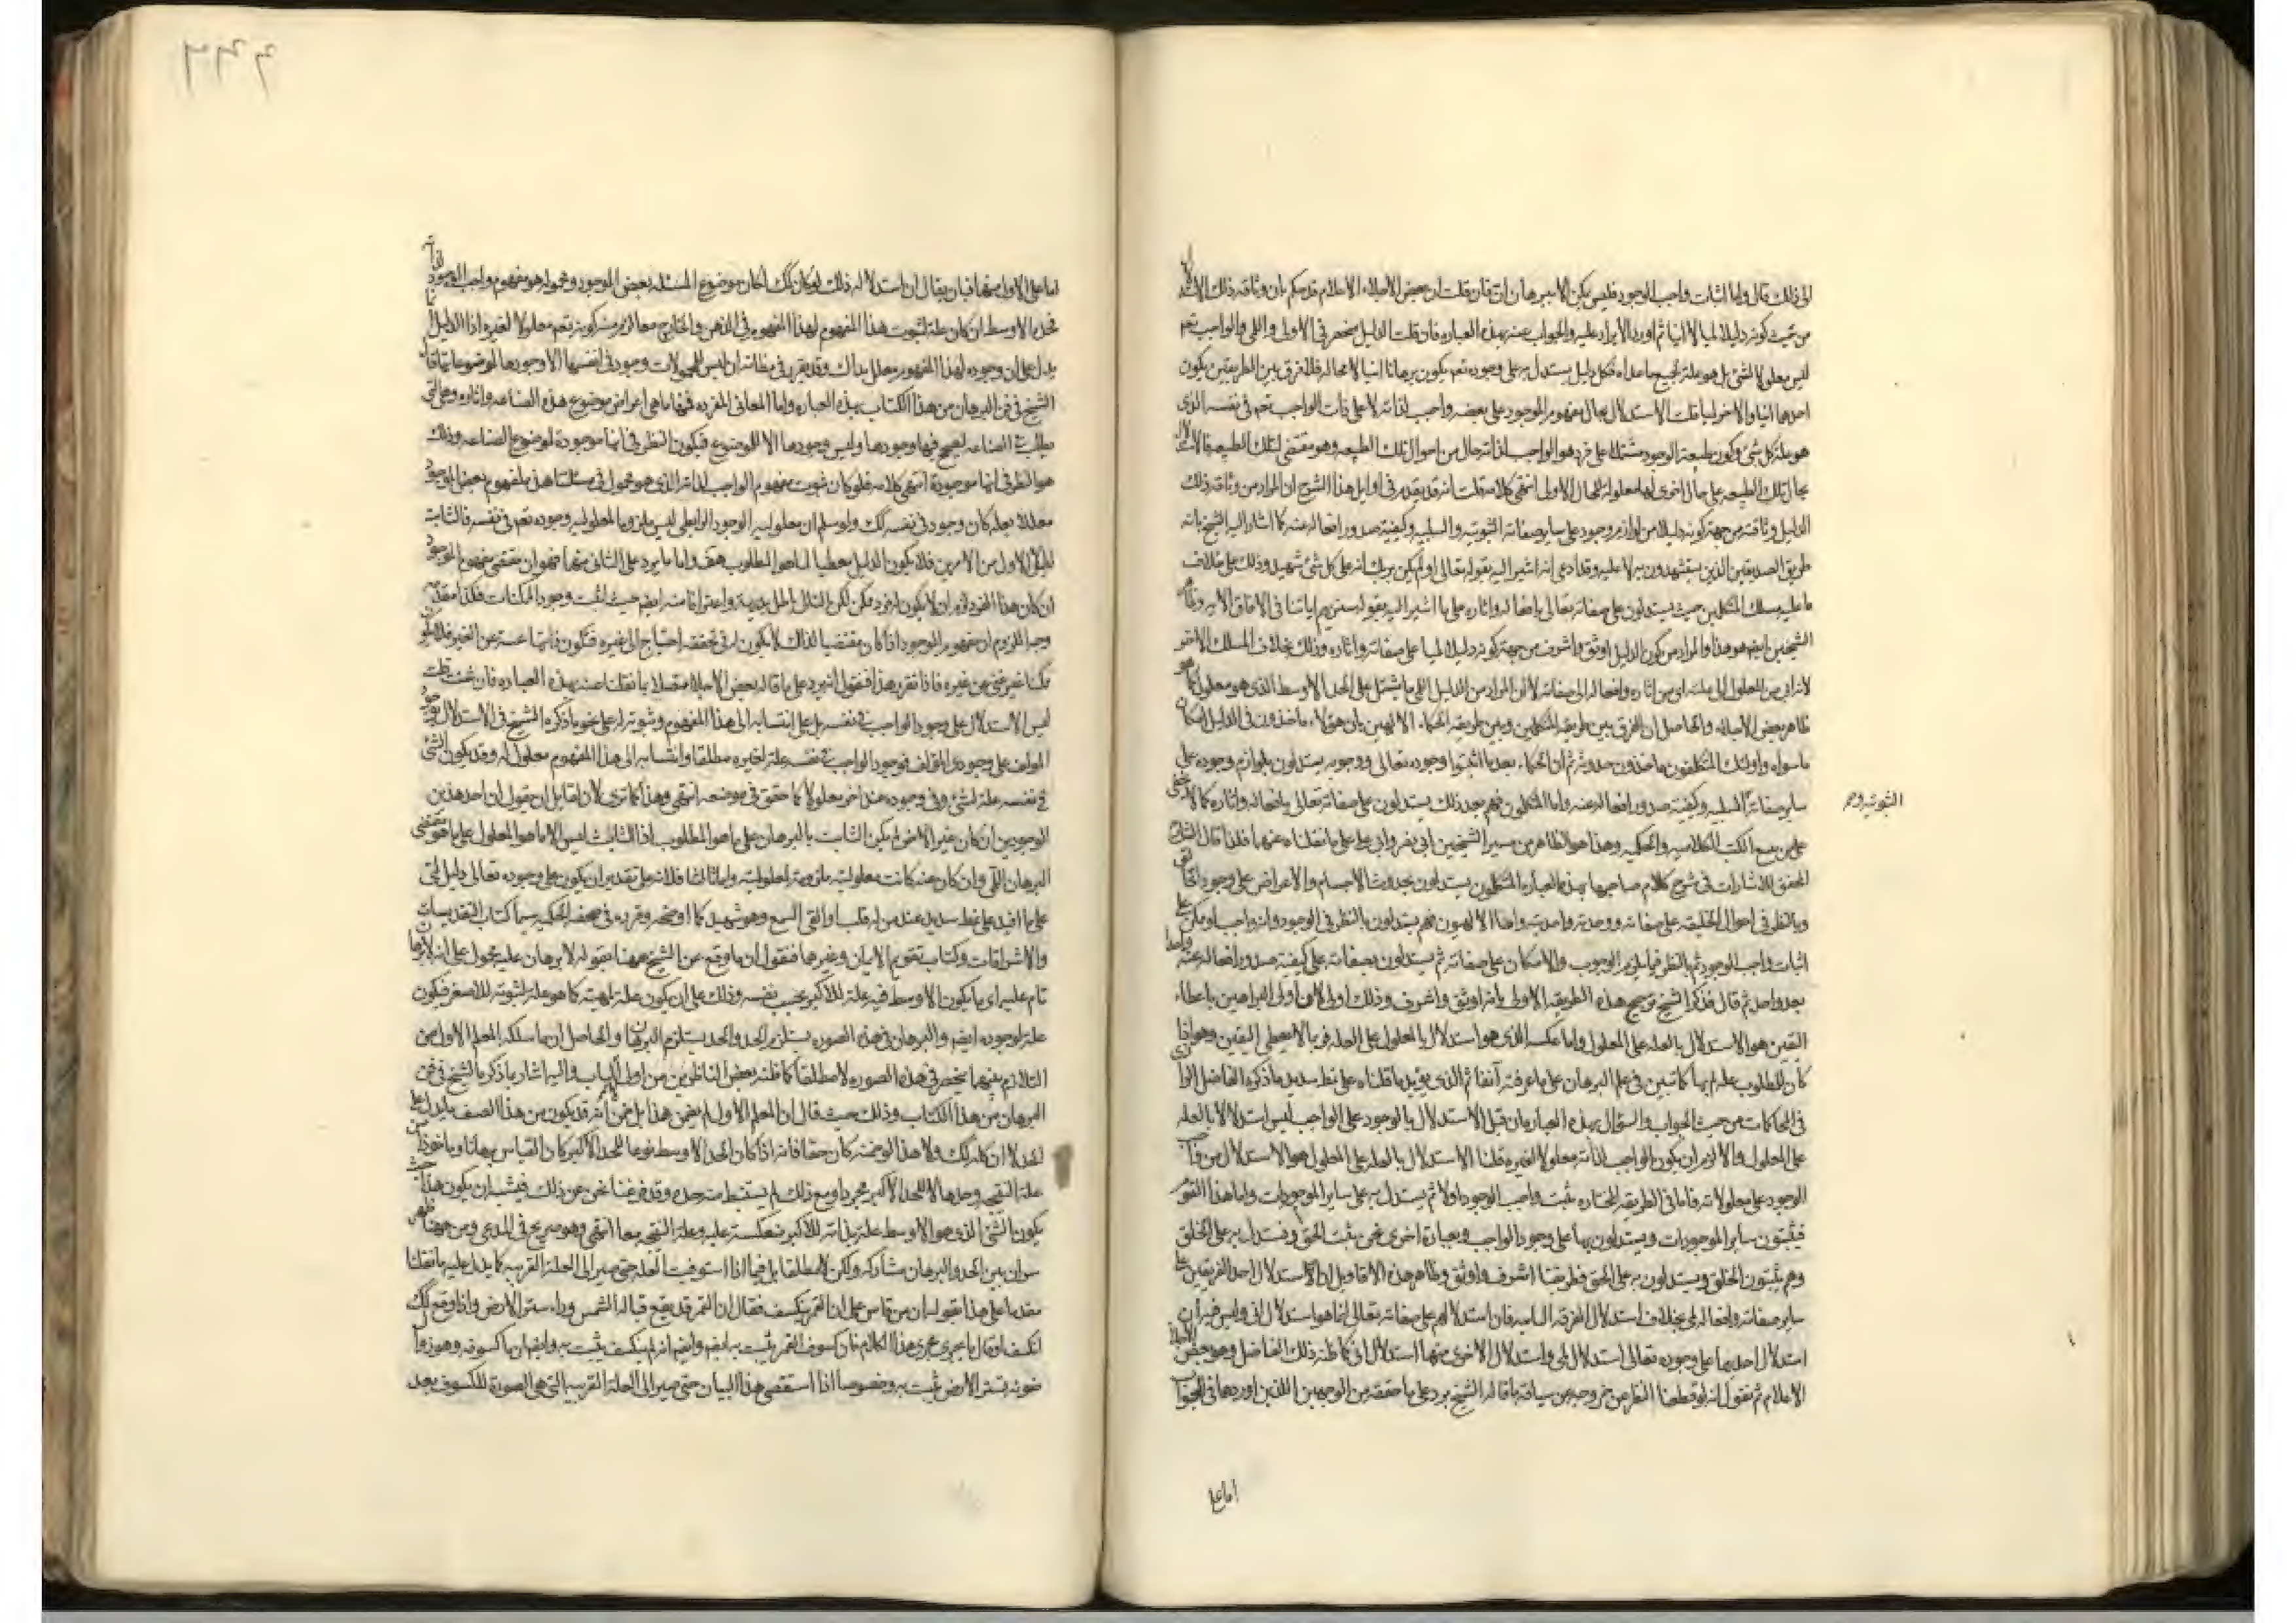 الى ذلك قال واما اثبات واجب الوجود فليس يكن الا ببرهان ان فان قلت ان بعض الاجلاء الاعلام قد حكم بان وثاقة ذلك
من حيث كونه دليلا لميا لا انيا ثم اورد الايراد عليه والجواب عنه بهذه العباره فان قلت الدليل منحصر في الاولى واللمى والواجب تعم
ليس معلولا لشئ بل هو علة لجميع ما عداه فكل دليل يستدل به على وجوده تعم يكون برهانا انيا لا محاله فلا فرق بين الطريقين يكون
احدهما انيا والاخر لميا قلت الاستدلال بحال مفهوم الموجود على بعضه واجب لذاته لا على ذات الواجب تعم في نفسه الذى
هو علة كل شئ وكون طبيعة الوجود مشتملا على فرد هو الواجب لذاته حال من احوال تلك الطبيعه وهو مقتضى لتلك الطبيعه
بحال تلك الطبيعه على حال اخرى لها معلولة للحال الاولى انتهى كلامه قلت انه قد تقدم في اوايل هذا الشرح ان المراد من وثاقة ذلك
الدليل وثاقته من جهة كونه دليلا من لوازم وجوده على ساير صفاته الثبوتيه والسلبيه وكيفية صدور افعاله عنه كما اشار اليه الشيخ بانه
طريق الصديقين الذين يستشهدون به لا عليه وقد ادعى انه اشير اليه بقوله تعالى او لم يكف بربك انه على كل شئ شهيد وذلك على خلاف
ما عليه مسلك المتكلمين حيث يستدلون على صفاته تعالى بافعاله واثاره على ما اشير اليه بقوله سنريهم اياتنا في الافاق الايه
الشيخين ايضا هو هذا والمراد من كون الدليل اوثق واشرف من جهة كونه دليلا لميا على صفاته واثاره وذلك بخلاف المسلك الاخر
لانه اني من المعلول الى علته اى من اثاره وافعاله الى صفاته لا ان المراد من الدليل اللمي ما يشتمل على الحد الاوسط الذى هو معلول
ظاهر بعض الاجلاء والحاصل ان الفرق بين طريقة المتكلمين وبين طريقة الحكماء الالهيين بان هولاء ماخذون في الدليل
ما سواه واولئك المتكلفون ماخذون حدوثه ثم ان الحكماء بعد ما اثبتوا وجوده تعالى ووجوبه يستدلون بلوازم وجوده على
ساير صفاته السلبيه وكيفية صدور افعاله عنه واما المتكلمون فهم بعد ذلك يستدلون على صفاته تعالى بافعاله واثاره كما لا يخفى
الثبوتيه و
على من تتبع الكتب الكلاميه والحكميه وهذا هو الظاهر من سير الشيخين ابى نصر وابى على على ما نقلناه عنهما فلذا قال الشارح
المحقق للاشارات في شرح كلام صاحبها بهذه العباره المتكلمون يستدلون بحدوث الاجسام والاعراض على وجود الخالق
وبالنظر في احوال الخليقه على صفاته ووحدته واحديته واما الالهيون فهم يستدلون بالنظر في الوجود وانه واجب او ممكن على
اثبات واجب الوجود ثم بالنظر فيما يلزم الوجوب والامكان على صفاته ثم يستدلون بصفاته على كيفية صدور افعاله عنه واحدا
بعد واحد ثم قال فذكر الشيخ ترجيح هذه الطريقه الاولى بانه اوثق واشرف وذلك لان اولى البراهين باعطاء
اليقين هو الاستدلال بالعله على المعلول واما عكسه الذى هو استدلال بالمعلول على العله فربما لا يعطى اليقين وهو اذا
كان للمطلوب علة لم يعرف بها كما تبين في علم البرهان على ما عرفته آنفا ثم الذى يؤيد ما قلناه على نمط سديد ما ذكره الفاضل
في المحاكمات من حيث الجواب والسؤال بهذه العباره فان قيل الاستدلال بالوجود على الواجب ليس استدلالا بالعله
على المعلول والا لزم ان يكون الواجب لذاته معلولا لغيره قلنا الاستدلال بالعله على المعلول هو الاستدلال من
الوجود على معلولاته فاما في الطريقه المختاره نثبت واجب الوجود اولا ثم يستدل به على ساير الموجودات واما هذا القوم
فيثبتون ساير الموجودات ويستدلون بها على وجود الواجب وبعبارة اخرى نحن نثبت الحق ونستدل به على الخلق
وهم يثبتون الخلق ويستدلون به على الحق فطريقتنا اشرف واوثق وظاهر هذه الاقاويل ان الاستدلال احد الفريقين على
ساير صفاته وافعاله لمي بخلاف استدلال الفرقه الثانيه فان استدلالهم على صفاته تعالى انما هو استدلال انى وليس فيه ان
استدلال احدهما على وجوده تعالى استدلال لمى واستدلال الاخرى منهما استدلال انى كما ظنه ذلك الفاضل وهو بعض الاجلاء
الاعلام ثم نقول انه لو قطعنا النظر عن خروجه عن سياقة ما قاله الشيخ يرد على ما حققه من الوجهين اللذين اوردهما في الجواب
اما على
اما على الاول منهما فبان يقال ان استدلاله ذلك لو كان كك لكان موضوع المسئله بعض الموجود ومحموله هو مفهوم واجب الوجود لذاته
فحد الاوسط ان كان علة لثبوت هذا المفهوم لهذا المفهوم في الذهن والخارج معا لزم منه كونه تعم معلولا لغيره اذ الدليل
يدل على ان وجوده لهذا المفهوم معلل بذاك وقد تقرر في مظانه ان ليس للمحمولات وجود في انفسها الا وجودها لموضوعاتها
الشيخ في فن البرهان من هذا الكتاب بهذه العباره واما المعاني المفرده فمنها ما هى اعراض موضوع هذه الصناعه واثاره وهى التى
يطلب في الصناعه لتصحيح فيها وجودها وليس وجودها الا للموضوع فيكون النظر في انها موجودة لموضوع الصناعه وذلك
هو النظر في انها موجودة انتهى كلامه فلو كان ثبوت مفهوم الواجب لذاته الذى هو محمول في مسئلتنا هذه لمفهوم بعض الموجود
معللا بعله كان وجود في نفسه كك ولو سلم ان معلولية الوجود الرابطى ليس ملزوما لمعلولية وجوده تعم في نفسه فالثابت
الاول من الامرين فلا يكون الدليل معطيا لما هو المطلوب هف واما ما يرد على الثاني منهما فهو ان مقتضى مفهوم الموجود
ان كان هذا الفرد لزم ان لا يكون له فرد ممكن لكن التالي باطل بديهة واعترافا منه ايضا حيث اثبت وجود الممكنات فكذا مقدمه
وجه اللزوم ان مفهوم الموجود اذا كان مقتضيا لذلك لا يكون له في تحققه احتياج الى غيره فتكون ذاتها غنية عن الغير
ممكنا غير غنى عن غيره فاذا تقرر هذا فنقول انه يرد على ما قاله بعض الاجلاء متصلا بما نقلنا عنه بهذه العباره فان شئت قلت
ليس الاستدلال على وجود الواجب في نفسه بل على انتسابه الى هذا المفهوم وثبوته له على نحو ما ذكره الشيخ في الاستدلال بوجود
المولف على وجود ذى المؤلف فوجود الواجب في نفسه علة لغيره مطلقا وانتسابه الى هذا المفهوم معلول له وقد يكون الشئ
في نفسه علة لشئ وفي وجوده عند اخر معلولا كما حقق في موضعه انتهى وهذا كما ترى لان لقايل ان يقول ان احد هذين
الوجودين ان كان غير الاخر لم يكن الثابت بالبرهان على ما هو المطلوب اذ الثابت ليس الا ما هو المعلول على ما هو مقتضى
البرهان اللمى وان كان عينه كانت معلوليته ملزومة لمعلوليته واما ثالثا فلانه على تقدير ان يكون على وجوده تعالى دليل لمى
على ما افيد على نمط سديد عند من له قلب او القى السمع وهو شهيد كما اوضحه وقرره في صحفه الحكميه سيما كتاب التقديسات
والاشراقات وكتاب تقويم الايمان وغيرها فنقول ان ما وقع عن الشيخ ههنا بقوله لا برهان عليه محمول على انه لا برهان
تام عليه اى ما يكون الاوسط فيه علة للاكبر بحسب نفسه وذلك على ان يكون علة لمهيته كما هو علة لثبوته للاصغر فيكون
علة لوجوده ايضا والبرهان في هذه الصوره يستلزم الحد والحد يستلزم البرهان والحاصل ان ما سلكه المعلم الاول من
التلازم بينهما ينحصر في هذه الصوره لا مطلقا كما ظنه بعض الناظرين من اولى الالباب واليه اشار ما ذكره الشيخ في فن
البرهان من هذا الكتاب وذلك حيث قال ان المعلم الاول لم يضمن هذا بل ضمن انه قد يكون من هذا الصنف ما يدل على
علة النتيجه وحدها لا للحد الاكبر مجردا ومع ذلك لم يستنبط منه حده وقد فرغنا نحن عن ذلك فيشبه ان يكون هذا حيث
يكون الشئ الذى هو الاوسط علة بذاته للاكبر منعكسة عليه وعلة النتيجه معا انتهى وهو صريح في المدعى ومن ههنا ظهر
سر ان بين الحد والبرهان مشاركه ولكن لا مطلقا بل فيما اذا استوفيت العله حتى صير الى العلة القريبه كما يدل عليه ما نقلنا
مقدما على هذا بقوله ان من قاس عمل ان القمر ينكسف فقال ان القمر قد يقع قباله الشمس وراء ستر الارض واذا وقع كك
انكسف او قال ما يجرى مجرى هذا الكلام فان كسوف القمر يثبت به ايضا وايضا انه لم ينكسف يثبت به وايضا ان ما كسوفه وهو زوال
ضوئه بستر الارض يثبت به وخصوصا اذا استقصى هذا البيان حتى صير الى العلة القريبه التى هى الصورة للكسوف بعد